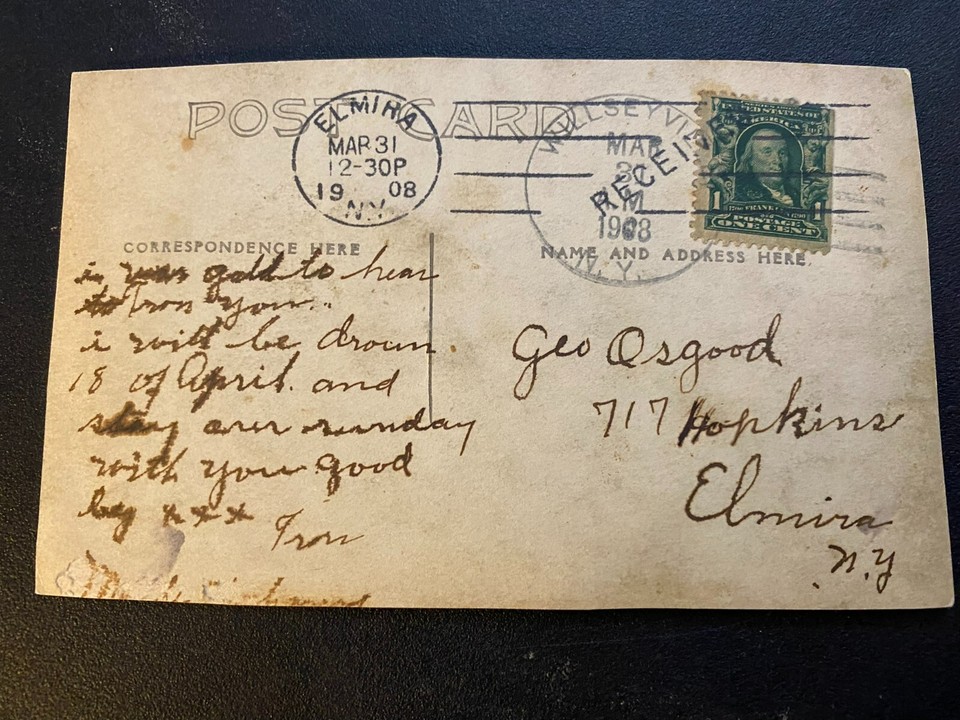 POST CARD
ELMIRA
MAR 31
12-30P
19 08
N.Y.
WILLSEYVILLE
MAR
31
M
1908
N.Y.
RECEIVED
UNITED STATES OF
AMERICA
1 FRANKLIN 1
POSTAGE
ONE CENT
CORRESPONDENCE HERE
NAME AND ADDRESS HERE.
i was gald to hear
to from you..
i will be droun
18 of April. and
stay over sunday
with you good
by x x x
From
Geo Osgood
717 Hopkins
Elmira
N.Y